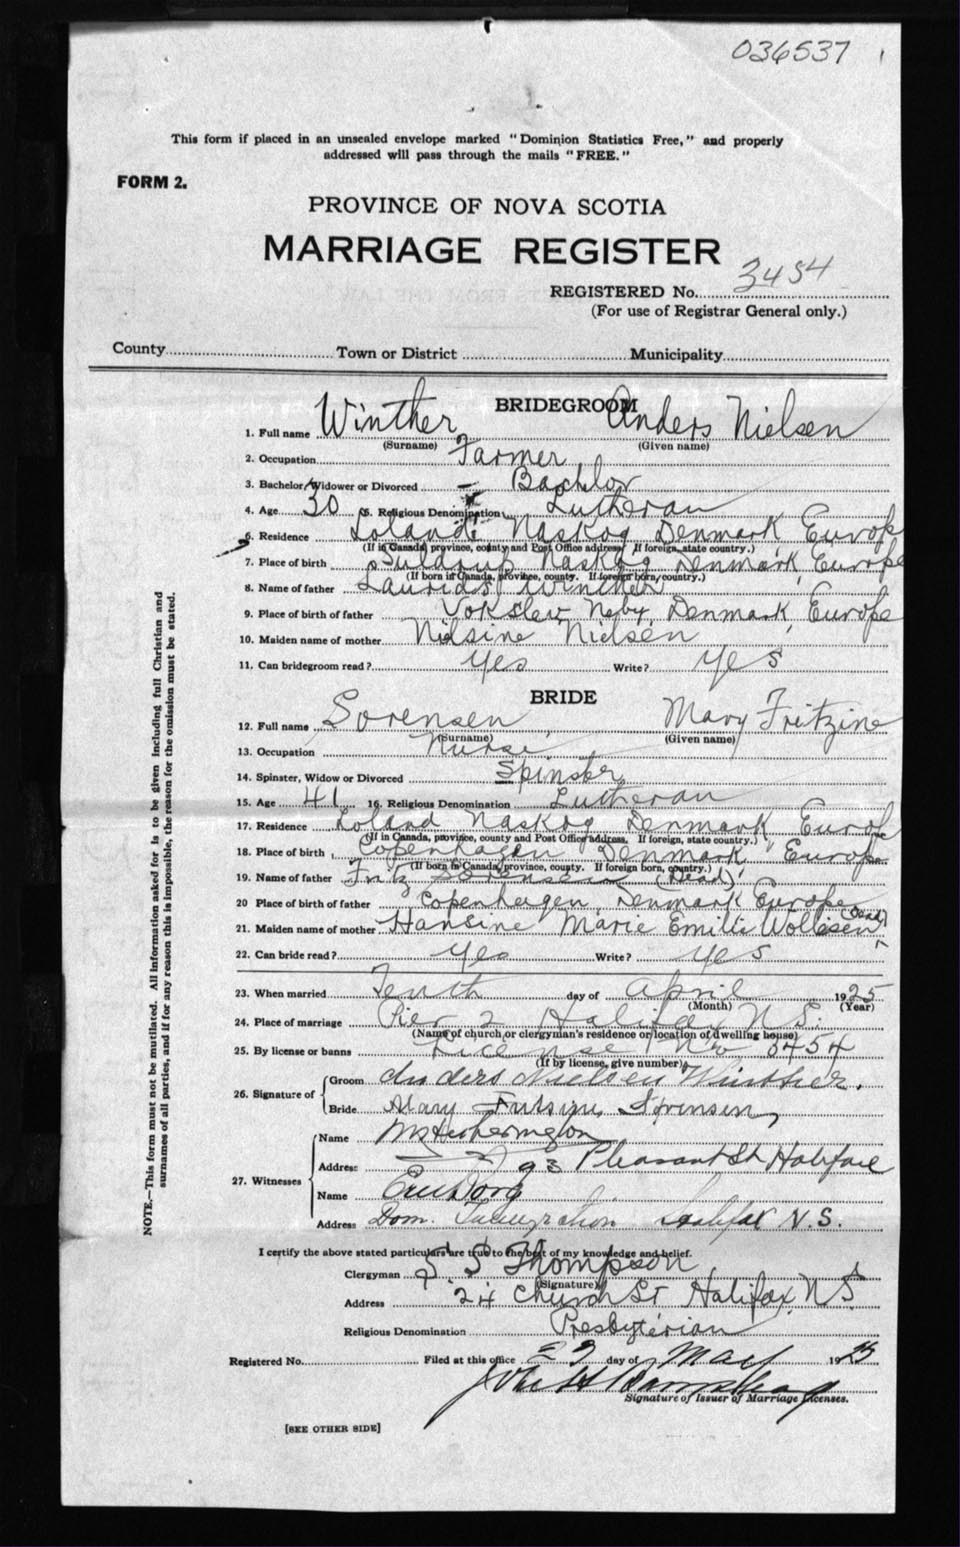 036537
This form if placed in an unsealed envelope marked "Dominion Statistics Free," and properly
addressed will pass through the mails "FREE."
FORM 2.
PROVINCE OF NOVA SCOTIA
MARRIAGE REGISTER
REGISTERED No. 3454
(For use of Registrar General only.)
County Town or District Municipality
BRIDEGROOM
1. Full name Winther Anders Nielsen
(Surname) (Given name)
2. Occupation Farmer
3. Bachelor, Widower or Divorced Bachlor
4. Age 30 5. Religious Denomination Lutheran
6. Residence Loland Naskog Denmark Europe
(If in Canada, province, county and Post Office address. If foreign, state country.)
7. Place of birth Naskog Denmark, Europe
(If born in Canada, province, county. If foreign born, country.)
8. Name of father Winther
9. Place of birth of father Denmark, Europe
10. Maiden name of mother Nielsine Nielsen
11. Can bridegroom read? Yes Write? Yes
BRIDE
12. Full name Sorensen Mary Fritzine
(Surname) (Given name)
13. Occupation Nurse
14. Spinster, Widow or Divorced Spinster
15. Age 41 16. Religious Denomination Lutheran
17. Residence Loland Naskog Denmark Europ
(If in Canada, province, county and Post Office address. If foreign, state country.)
18. Place of birth Copenhagen Denmark, Europe
(If born in Canada, province, county. If foreign born, country.)
19. Name of father Fritz Sorensen (Dead)
20 Place of birth of father Copenhagen, Denmark Europe
21. Maiden name of mother Hansine Marie Emilie (Dead)
22. Can bride read? Yes Write? Yes
23. When married Tenth day of April 1925
(Month) (Year)
24. Place of marriage Pier 2 Halifax N.S.
(Name of church or clergyman's residence or location of dwelling house)
25. By license or banns License No 8454
(If by license, give number)
26. Signature of Groom Anders Nielsen Winther.
Bride Mary Sorensen
27. Witnesses Name
Address 93 Pleasant St. Halifax
Name
Address Dom. Immigration Halifax N.S.
I certify the above stated particulars are true to the best of my knowledge and belief.
Clergyman Thompson
(Signature)
Address 24 Church St Halifax, N.S.
Religious Denomination Presbyterian
Registered No. Filed at this office day of May 1925
Signature of Issuer of Marriage Licenses.
[SEE OTHER SIDE]
NOTE.—This form must not be mutilated. All information asked for is to be given including full Christian and
surnames of all parties, and if for any reason this is impossible, the reason for the omission must be stated.